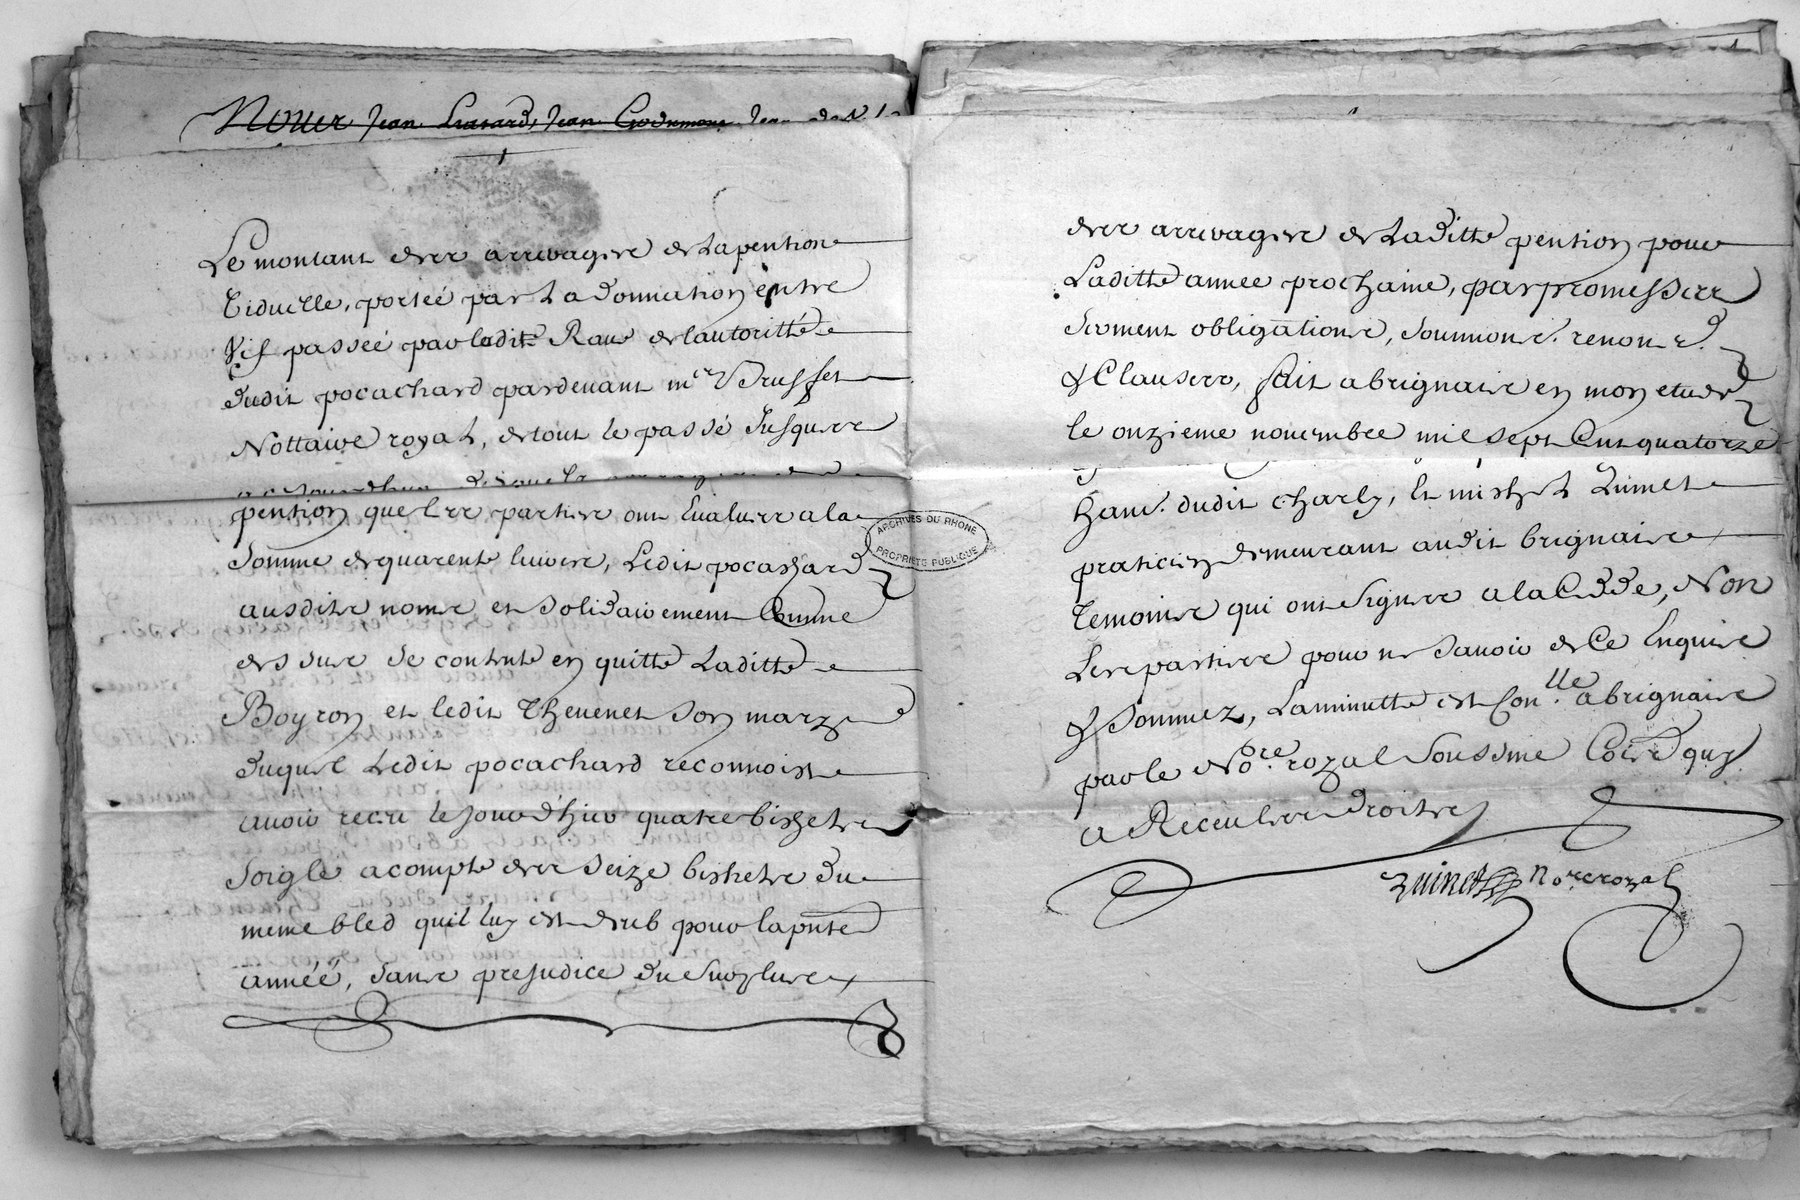 Noyer Jean Jean
Le montant des arrerages de la pention
Viduelle, portée par la donnation entre
Vif passée par ladite Rave de lautoritté
dudit pocachard pardevant me Brusset
Nottaire royal, de tout le passé Jusques
a ce Jourdhuy
pention que les parties ont Evaluée a la
Somme de quarente livres, Ledit pocachard
ausdits noms et solidairement Comme
dessus se contente en quitte Laditte
Boyron et ledit Thevenet son mary
duquel Ledit pocachard reconnoist
avoir receu le Jourd'huy quatre bichets
Soigle acompte des seize bichets du
meme bled quil luy est deub pour la pnte
année, sans prejudice du surplus
ARCHIVES DU RHONE
PROPRIETE PUBLIQUE
des arrerages de Laditte pention pour
Laditte année prochaine, par promesses
serment obligations, soumons. renon.
& Clauses, fait a brignais en mon etude
le onzieme novembre mil sept Cent quatorze
hant. dudit charly, et michel Zuinet
praticien demeurant audit brignais
Temoins qui ont signé a la Cedde, Non
Les parties pour ne savoir de Ce Enquis
& sommez, La minutte est Con.lle a brignais
par le No.re royal soussine Coie quy
a Receu les droits
Zuinet No.re royal